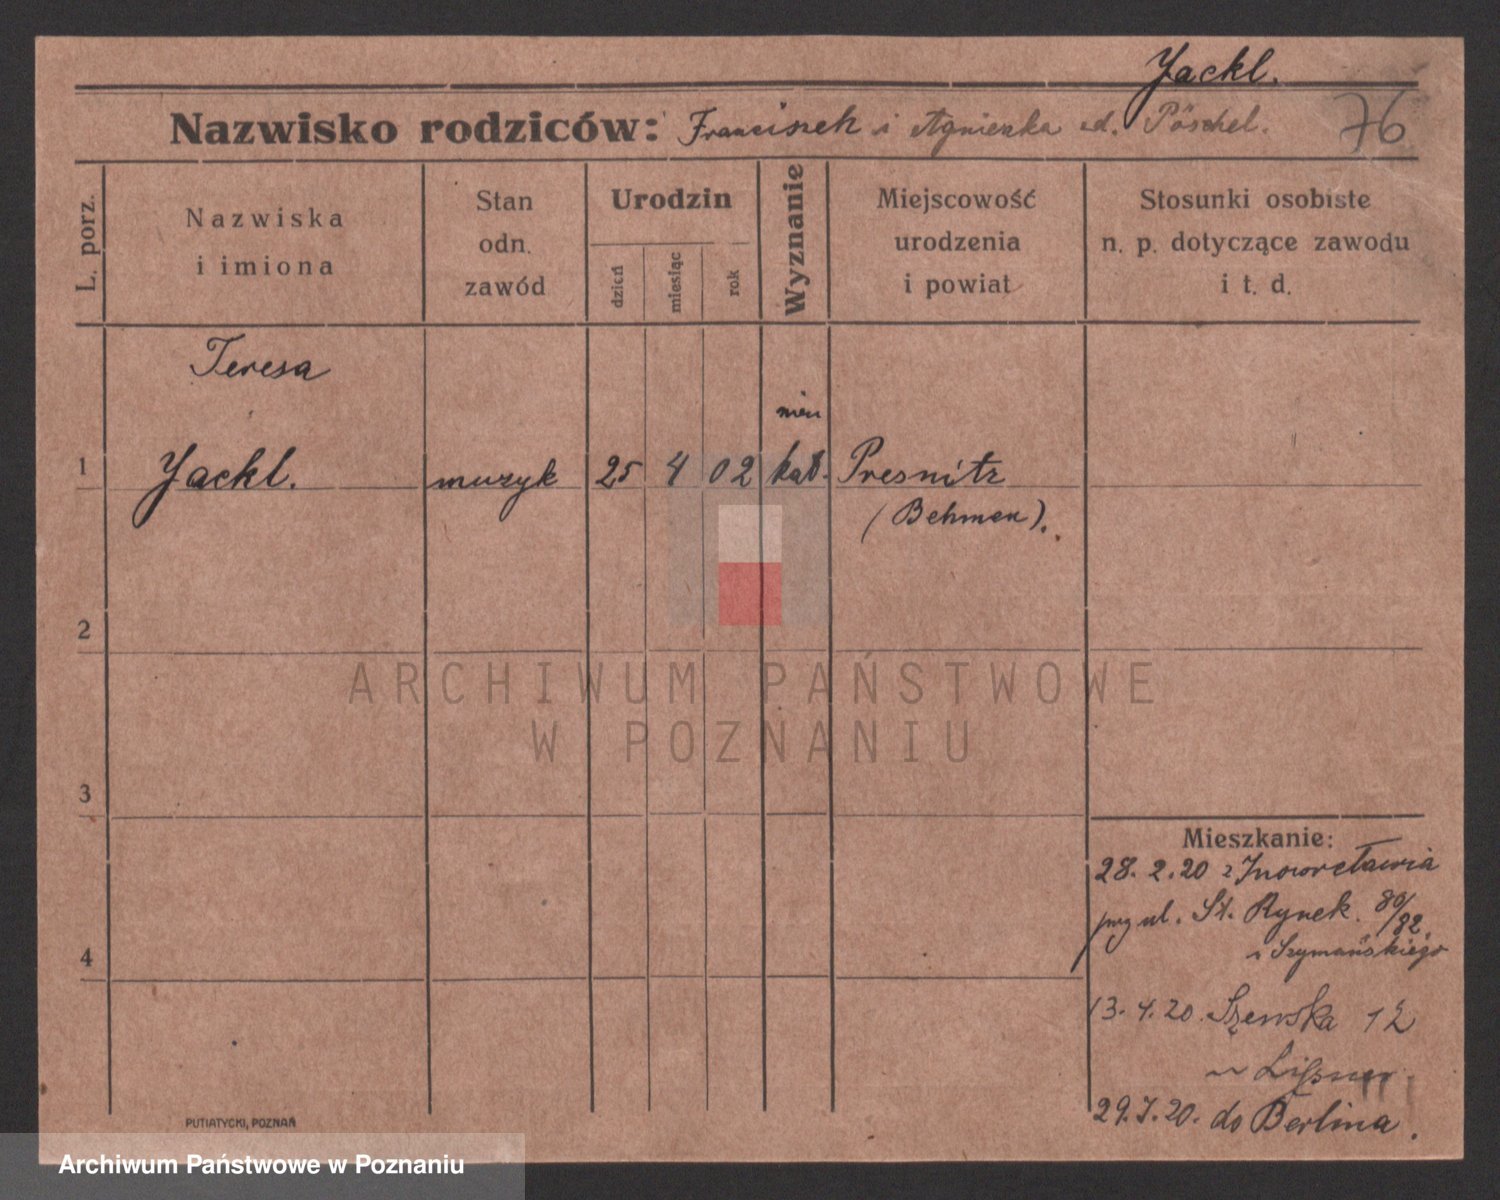 Jackl.
Nazwisko rodziców: Franciszek i Agnieszka ad. Pöschel.
76
L. porz.
Nazwiska
i imiona
Stan
odn.
zawód
Urodzin
dzień
miesiąc
rok
Wyznanie
Miejscowość
urodzenia
i powiat
Stosunki osobiste
n. p. dotyczące zawodu
i t. d.
Teresa
1 Jackl. muzyk 25 4 02 kat. Presnitz
(Behmen).
2
3
4
Mieszkanie:
28. 2. 20 z Inowrocławia
ul. St. Rynek. 80/82.
Szymańskiego
13. 4. 20. Szewska 12
29.7.20. do Berlina.
PUTIATYCKI, POZNAŃ
ARCHIWUM PAŃSTWOWE
W POZNANIU
Archiwum Państwowe w Poznaniu